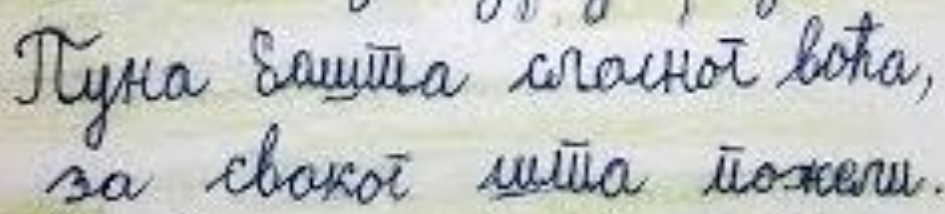 Пуна башта сласног воћа,
за сваког шта пожели.